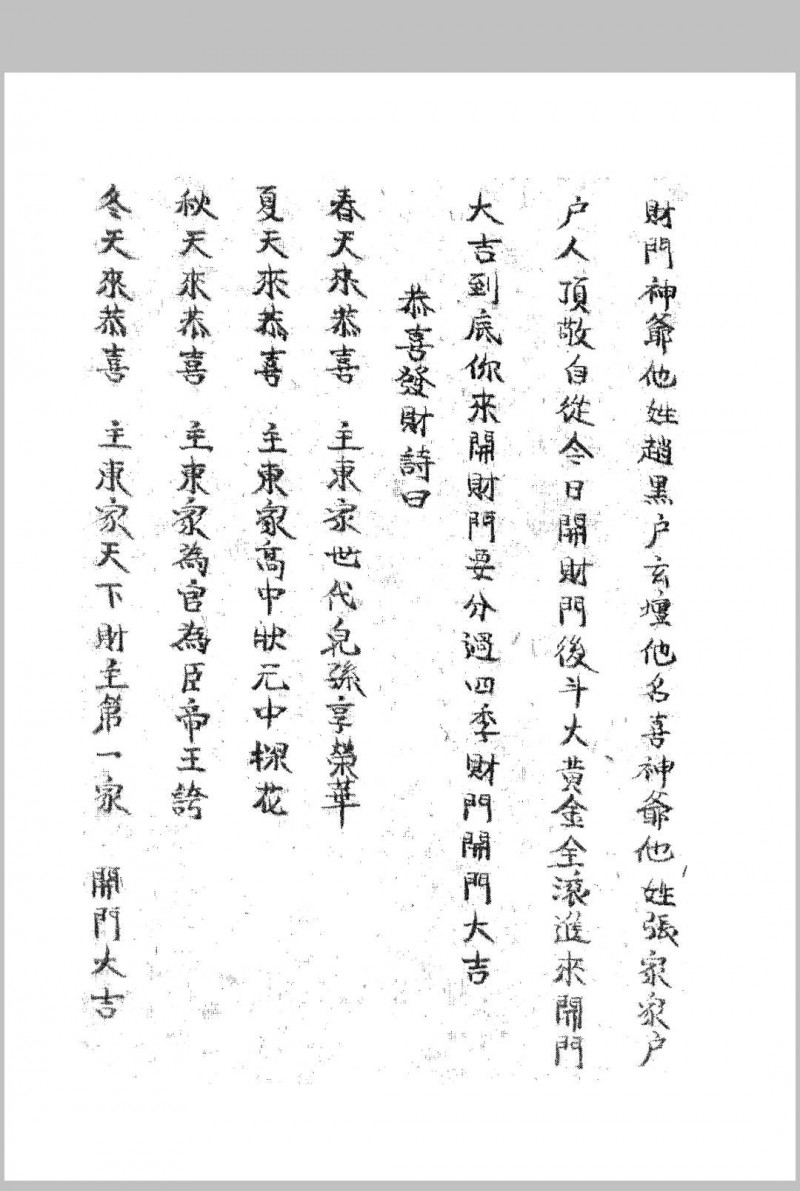 財門神爺他姓趙黑户玄壇他名喜神爺他姓張家家户
户人頂敬自從今日開財門後斗大黃金全滾進來開門
大吉到底你來開財門要分過四季財門開門大吉
恭喜發財詩曰
春天來恭喜 主東家世代兒孫享榮華
夏天來恭喜 主東家高中狀元中探花
秋天來恭喜 主東家為官為臣帝王誇
冬天來恭喜 主東家天下財主第一家 開門大吉